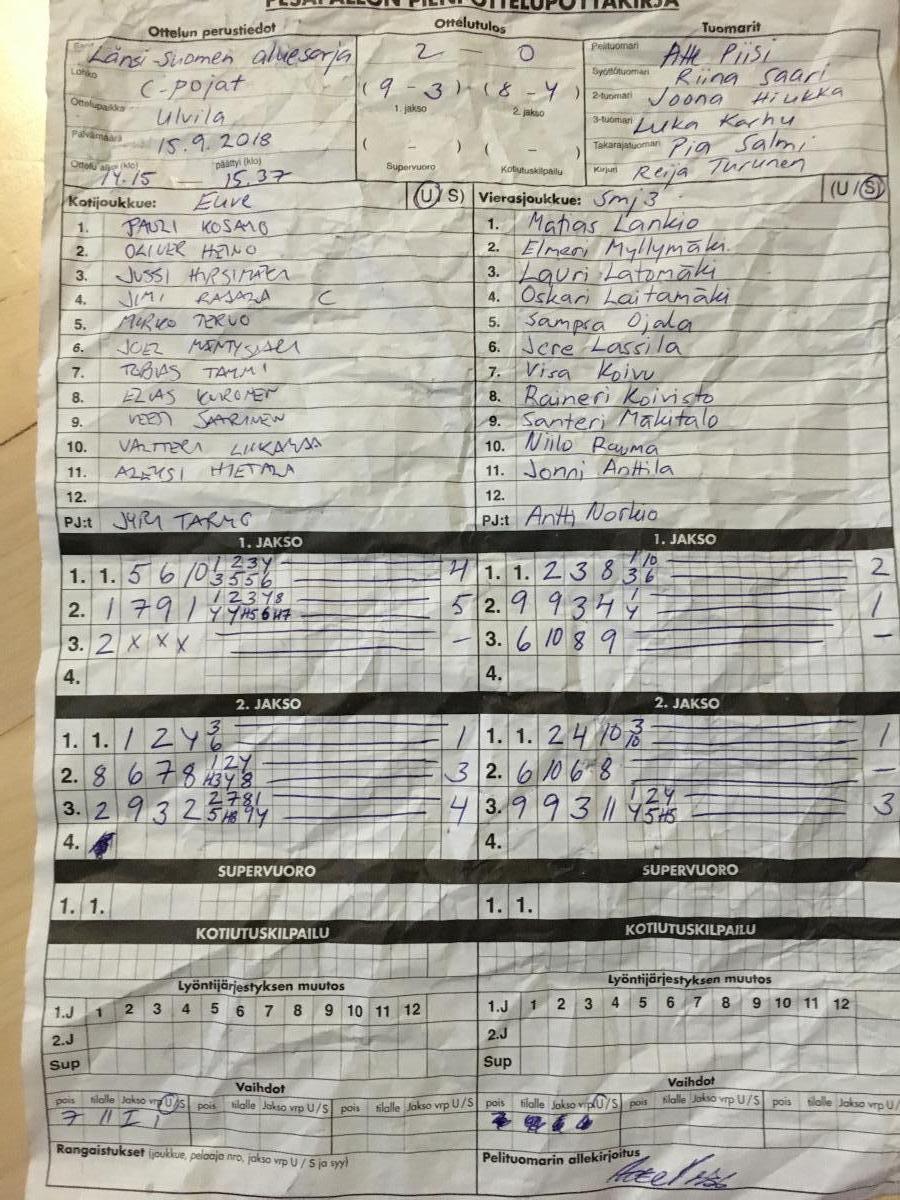 PESÄPALLON PIENI OTTELUPÖYTÄKIRJA
Ottelun perustiedot
Ottelutulos
Tuomarit
Sarja Länsi-Suomen aluesarja
Lohko C-pojat
Ottelupaikka Ulvila
Päivämäärä 15.9.2018
Ottelu alkoi (klo) 14.15 päättyi (klo) 15.37
2 - 0
(9 - 3) (8 - 4)
1. jakso 2. jakso
( - ) ( - )
Supervuoro Kotiutuskilpailu
Pelituomari Piisi
Syöttötuomari Riina Saari
2-tuomari Joona Hiukka
3-tuomari Luka Karhu
Takarajatuomari Pia Salmi
Kirjuri Reija Turunen
Kotijoukkue: Eure (U/S)
1. PAULI KOSAMO
2. OLIVER HEINO
3. JUSSI HIRSIMÄKI
4. JIMI RAJALA C
5. MIRKO TERVO
6. JOEL
7. TOBIAS TAMMI
8. ELIAS KURONEN
9. VEETI SAARINEN
10. VALTTERI
11. ALEKSI HIETALA
12.
PJ:t JYRI TARMO
Vierasjoukkue: Smj 3 (U/S)
1. Matias Lankio
2. Elmeri Myllymäki
3. Lauri Latomäki
4. Oskari Laitamäki
5. Sampsa Ojala
6. Jere Lassila
7. Visa Koivu
8. Raineri Koivisto
9. Santeri Mäkitalo
10. Niilo Rauma
11. Jonni Anttila
12.
PJ:t Antti Norkio
1. JAKSO
1. 1. 5 6 10 1 2 3 4 4
3 5 5 6
2. 1 7 9 1 1 2 3 4 8 5
4 4 H5 6 H7
3. 2 x x x -
4.
1. JAKSO
1. 1. 2 3 8 1 10 2
3 6
2. 9 9 3 4 1 1
4
3. 6 10 8 9 -
4.
2. JAKSO
1. 1. 1 2 4 3 1
6
2. 8 6 7 8 1 2 4 3
H3 4 8
3. 2 9 3 2 2 7 8 1 4
5 H8 9 4
4.
2. JAKSO
1. 1. 2 4 10 3 1
10
2. 6 10 6 8 -
3. 9 9 3 11 1 2 4 3
4 5 H5
4.
SUPERVUORO
1. 1.
SUPERVUORO
1. 1.
KOTIUTUSKILPAILU
KOTIUTUSKILPAILU
Lyöntijärjestyksen muutos
1.J 1 2 3 4 5 6 7 8 9 10 11 12
2.J
Sup
Lyöntijärjestyksen muutos
1.J 1 2 3 4 5 6 7 8 9 10 11 12
2.J
Sup
Vaihdot
pois tilalle Jakso vrp U/S pois tilalle Jakso vrp U/S pois tilalle Jakso vrp U/S
7 11 I 1
Vaihdot
pois tilalle Jakso vrp U/S pois tilalle Jakso vrp U/S pois tilalle Jakso vrp U/
Rangaistukset (joukkue, pelaaja nro, jakso vrp U / S ja syy)
Pelituomarin allekirjoitus